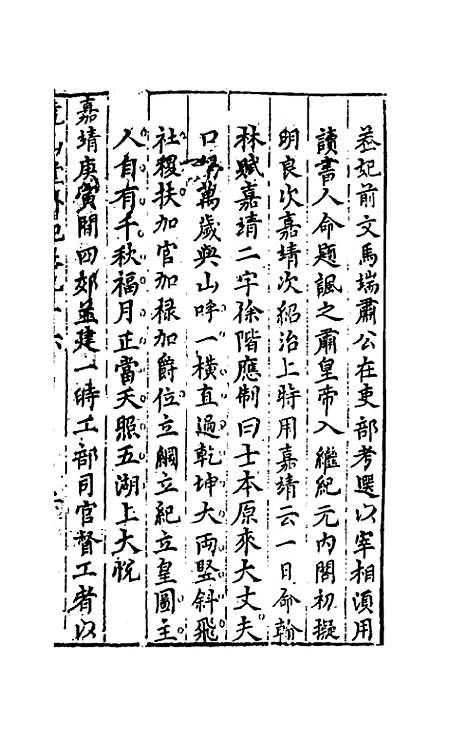 丞妃前文馬端肅公在吏部考選以宰相須用
讀書人命題諷之肅皇帝入繼紀元內閣初擬
明良次嘉靖次紹治上時用嘉靖云一日命翰
林賦嘉靖二字徐階應制曰士本原來大丈夫
口 萬歲與山呼一橫直過乾坤大両竪斜飛
社稷扶加官加禄加爵位立綱立紀立皇圖主
人自有千秋福月正當天照五湖上大悅
嘉靖庚寅間四郊並建一時工部司官督工者以